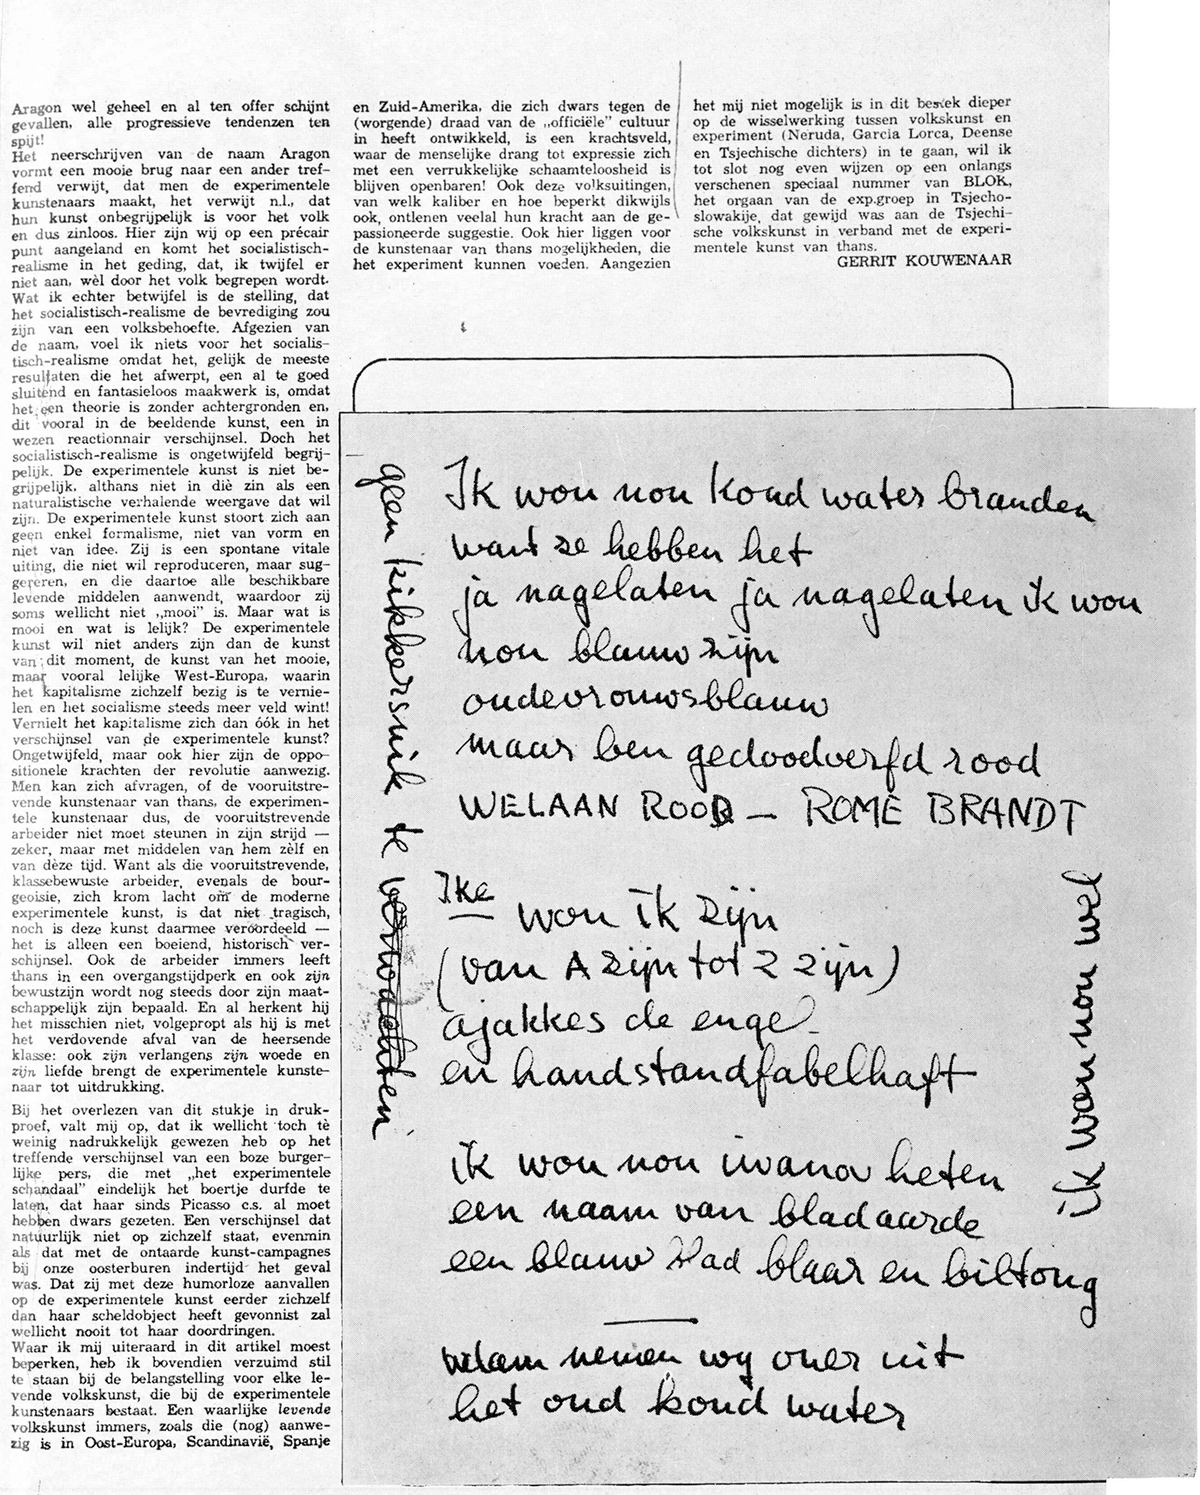 Aragon wel geheel en al ten offer schijnt
gevallen, alle progressieve tendenzen ten
spijt!
Het neerschrijven van de naam Aragon
vormt een mooie brug naar een ander tref-
fend verwijt, dat men de experimentele
kunstenaars maakt, het verwijt n.l., dat
hun kunst onbegrijpelijk is voor het volk
en dus zinloos. Hier zijn wij op een précair
punt aangeland en komt het socialistisch-
realisme in het geding, dat, ik twijfel er
niet aan, wèl door het volk begrepen wordt.
Wat ik echter betwijfel is de stelling, dat
het socialistisch-realisme de bevrediging zou
zijn van een volksbehoefte. Afgezien van
de naam, voel ik niets voor het socialis-
tisch-realisme omdat het, gelijk de meeste
resultaten die het afwerpt, een al te goed
sluitend en fantasieloos maakwerk is, omdat
het een theorie is zonder achtergronden en,
dit vooral in de beeldende kunst, een in
wezen reactionnair verschijnsel. Doch het
socialistisch-realisme is ongetwijfeld begrij-
pelijk. De experimentele kunst is niet be-
grijpelijk, althans niet in diè zin als een
naturalistische verhalende weergave dat wil
zijn. De experimentele kunst stoort zich aan
geen enkel formalisme, niet van vorm en
niet van idee. Zij is een spontane vitale
uiting, die niet wil reproduceren, maar sug-
gereren, en die daartoe alle beschikbare
levende middelen aanwendt, waardoor zij
soms wellicht niet „mooi” is. Maar wat is
mooi en wat is lelijk? De experimentele
kunst wil niet anders zijn dan de kunst
van dit moment, de kunst van het mooie,
maar vooral lelijke West-Europa, waarin
het kapitalisme zichzelf bezig is te vernie-
len en het socialisme steeds meer veld wint!
Vernielt het kapitalisme zich dan óók in het
verschijnsel van de experimentele kunst?
Ongetwijfeld, maar ook hier zijn de oppo-
sitionele krachten der revolutie aanwezig.
Men kan zich afvragen, of de vooruitstre-
vende kunstenaar van thans, de experimen-
tele kunstenaar dus, de vooruitstrevende
arbeider niet moet steunen in zijn strijd —
zeker, maar met middelen van hem zèlf en
van dèze tijd. Want als die vooruitstrevende,
klassebewuste arbeider, evenals de bour-
geoisie, zich krom lacht om de moderne
experimentele kunst, is dat niet tragisch,
noch is deze kunst daarmee veroordeeld —
het is alleen een boeiend, historisch ver-
schijnsel. Ook de arbeider immers leeft
thans in een overgangstijdperk en ook zijn
bewustzijn wordt nog steeds door zijn maat-
schappelijk zijn bepaald. En al herkent hij
het misschien niet, volgepropt als hij is met
het verdovende afval van de heersende
klasse: ook zijn verlangens zijn woede en
zijn liefde brengt de experimentele kunste-
naar tot uitdrukking.
Bij het overlezen van dit stukje in druk-
proef, valt mij op, dat ik wellicht toch tè
weinig nadrukkelijk gewezen heb op het
treffende verschijnsel van een boze burger-
lijke pers, die met „het experimentele
schandaal” eindelijk het boertje durfde te
laten, dat haar sinds Picasso c.s. al moet
hebben dwars gezeten. Een verschijnsel dat
natuurlijk niet op zichzelf staat, evenmin
als dat met de ontaarde kunst-campagnes
bij onze oosterburen indertijd het geval
was. Dat zij met deze humorloze aanvallen
op de experimentele kunst eerder zichzelf
dan haar scheldobject heeft gevonnist zal
wellicht nooit tot haar doordringen.
Waar ik mij uiteraard in dit artikel moest
beperken, heb ik bovendien verzuimd stil
te staan bij de belangstelling voor elke le-
vende volkskunst, die bij de experimentele
kunstenaars bestaat. Een waarlijke levende
volkskunst immers, zoals die (nog) aanwe-
zig is in Oost-Europa, Scandinavië, Spanje
en Zuid-Amerika, die zich dwars tegen de
(worgende) draad van de „officiële” cultuur
in heeft ontwikkeld, is een krachtsveld,
waar de menselijke drang tot expressie zich
met een verrukkelijke schaamteloosheid is
blijven openbaren! Ook deze volksuitingen,
van welk kaliber en hoe beperkt dikwijls
ook, ontlenen veelal hun kracht aan de ge-
passioneerde suggestie. Ook hier liggen voor
de kunstenaar van thans mogelijkheden, die
het experiment kunnen voeden. Aangezien
het mij niet mogelijk is in dit bestek dieper
op de wisselwerking tussen volkskunst en
experiment (Neruda, Garcia Lorca, Deense
en Tsjechische dichters) in te gaan, wil ik
tot slot nog even wijzen op een onlangs
verschenen speciaal nummer van BLOK,
het orgaan van de exp.groep in Tsjecho-
slowakije, dat gewijd was aan de Tsjechi-
sche volkskunst in verband met de experi-
mentele kunst van thans.
GERRIT KOUWENAAR
geen kikkersnik te verwachten
Ik wou nou koud water branden
want ze hebben het
ja nagelaten ja nagelaten ik wou
nou blauw zijn
oudevrouwsblauw
maar ben gedoodverfd rood
WELAAN ROOD — ROME BRANDT
Ike
wou ik zijn
(van A zijn tot Z zijn)
ajakkes de enge
en handstandfabelhaft
ik wou nou iwanow heten
een naam van bladaarde
een blauw blad blaar en biltong
ik wou nou wel
welaan nemen wy over uit
het oud koud water